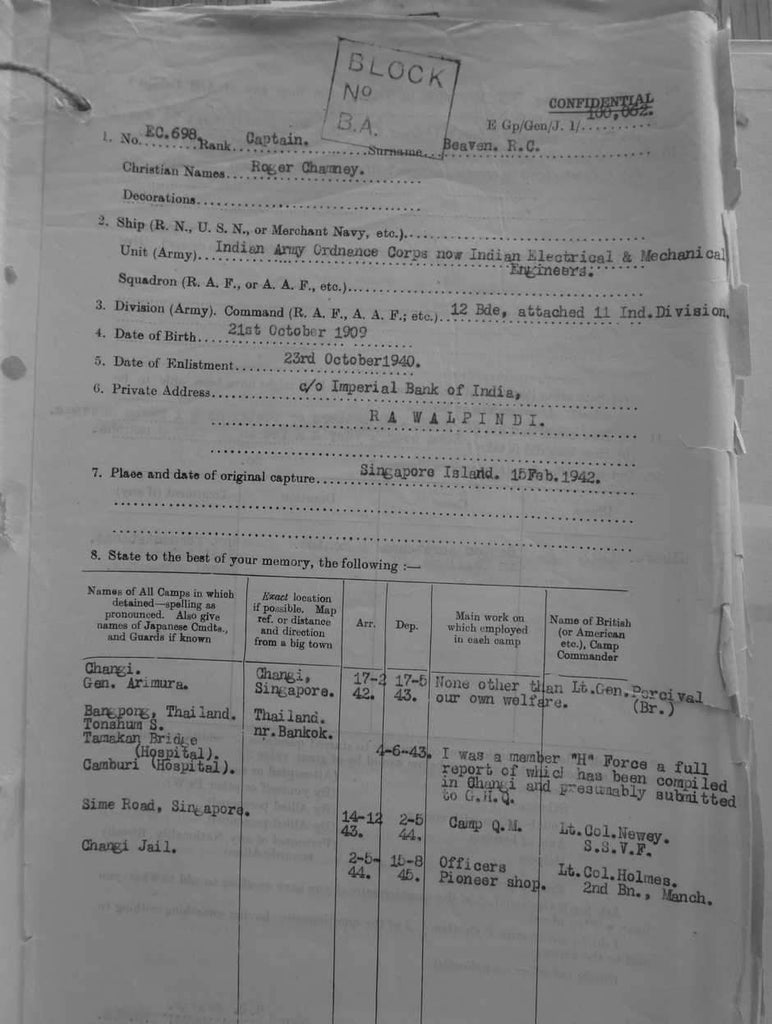 BLOCK
No
B.A.
CONFIDENTIAL
100,062.
E Gp/Gen/J. 1/..........
1. No. EC.698. Rank. Captain. Surname... Beaven. R.C.
Christian Names.... Roger Chamney.
Decorations
2. Ship (R. N., U. S. N., or Merchant Navy, etc.)
Unit (Army).. Indian Army Ordnance Corps now Indian Electrical & Mechanical
Engineers.
Squadron (R. A. F., or A. A. F., etc.)
3. Division (Army). Command (R. A. F., A. A. F.; etc.).. 12 Bde, attached 11 Ind.Division.
4. Date of Birth.... 21st October 1909
5. Date of Enlistment........ 23rd October1940.
6. Private Address............... c/o Imperial Bank of India,
RAWALPINDI.
7. Place and date of original capture...... Singapore Island. 15Feb.1942.
8. State to the best of your memory, the following :—
Names of All Camps in which
detained—spelling as
pronounced. Also give
names of Japanese Cmdts.,
and Guards if known
Exact location
if possible. Map
ref. or distance
and direction
from a big town
Arr.
Dep.
Main work on
which employed
in each camp
Name of British
(or American
etc.), Camp
Commander
Changi. Changi, 17-2 17-5 None other than Lt.Gen. Percival
Gen. Arimura. Singapore. 42. 43. our own welfare. (Br.)
Bangpong, Thailand. Thailand.
Tonshum S. nr.Bankok.
Tamakan Bridge 4-6-43. I was a member "H" Force a full
(Hospital). report of which has been compiled
Camburi (Hospital). in Changi and presumably submitted
to G.H.Q.
Sime Road, Singapore. 14-12 2-5 Camp Q.M. Lt.Col.Newey.
43. 44. S.S.V.F.
Changi Jail. 2-5- 15-8 Officers Lt.Col.Holmes.
44. 45. Pioneer shop. 2nd Bn., Manch.